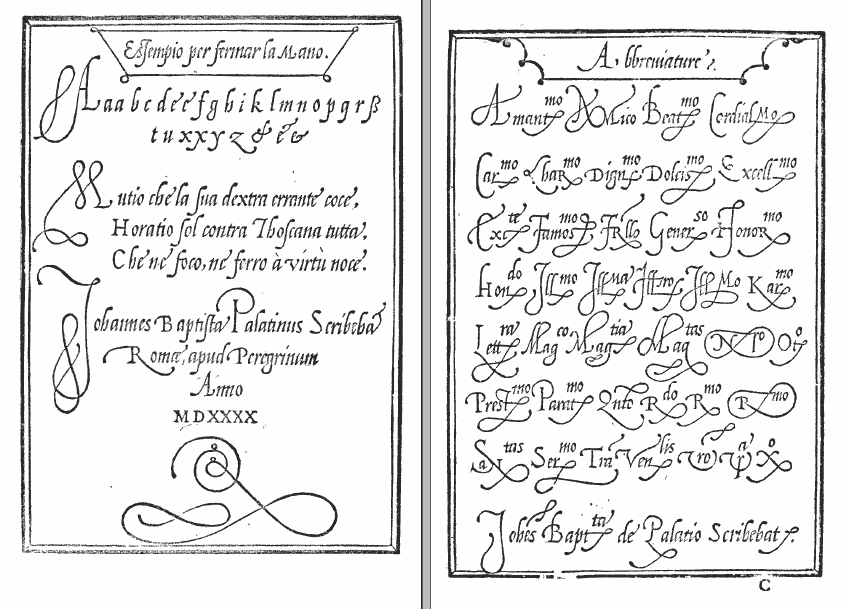 Essempio per fermar la Mano.
A a a b c d e e f g h i k l m n o p q r s ß
t u x x y z & &
Mutio che la sua dextra errante coce,
Horatio sol contra Thoscana tutta,
Che ne foco, ne ferro à virtù noce.
Johannes Baptista Palatinus Scribebat
Romæ, apud Peregrinum
Anno
MDXXXX
Abbreviature.
Amantmo Amico Beatmo Cordialmo
Carmo Charmo Dignmo Dolcismo Excellmo
Excte Famosmo Frllo Generso Honormo
Hondo Illmo Illmo Karmo
Lettra Magco Magtia Magtas No
Prestmo Paratmo Qnto Rdo Rmo Rmo
Stas Sermo Tra Venlis Vro Xo
Johes Baptta de Palatio Scribebat.
C